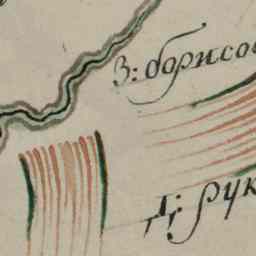 З: борисо
Д: рук